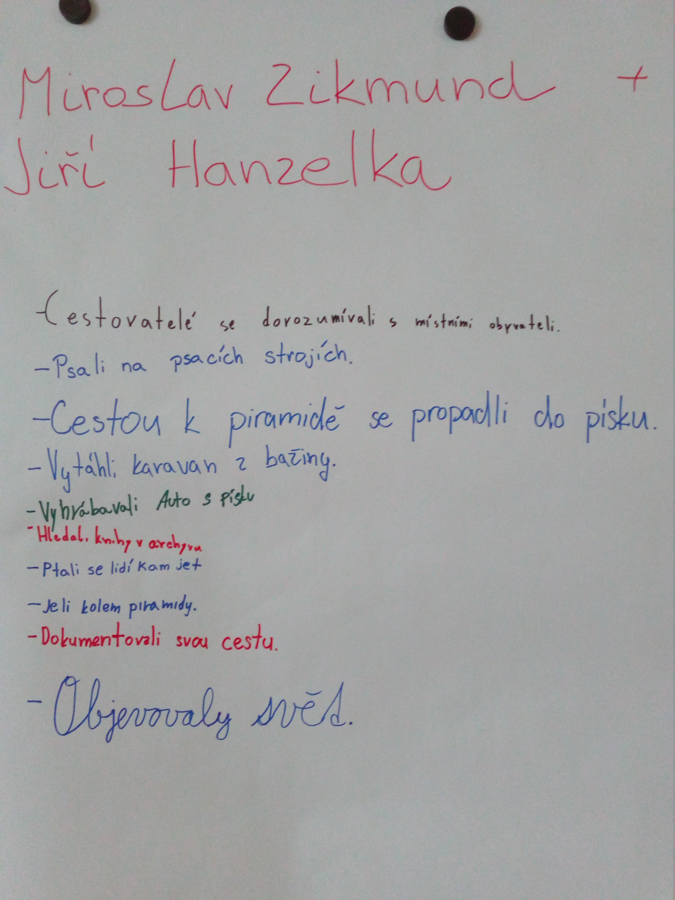 Miroslav Zikmund +
Jiří Hanzelka
-Cestovatelé se dorozumívali s místními obyvateli.
-Psali na psacích strojích.
-Cestou k piramidě se propadli do písku.
-Vytáhli karavan z bažiny.
-Vyhrábavali Auto s písku
-Hledali knihy v archyvu
-Ptali se lidí kam jet
-Jeli kolem piramidy.
-Dokumentovali svou cestu.
-Objevovaly svět.